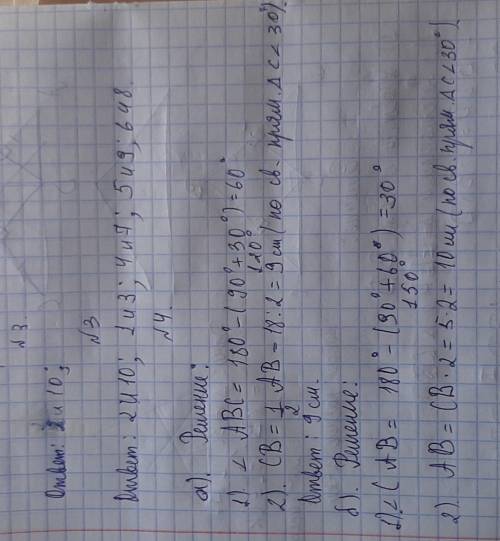 №3.
Ответ: 2 и 10;
№3
Ответ: 2 и 10; 1 и 3; 4 и 7; 5 и 9; 6 и 8.
№4.
а). Решение:
1) ∠ ABC = 180° - (90° + 30°) = 60°
120°
2). CB = 1/2 AB = 18 : 2 = 9 см (по св. прям. Δ с ∠ 30°)
Ответ: 9 см.
б). Решение:
1) ∠ CAB = 180° - (90° + 60°) = 30°
150°
2) AB = CB · 2 = 5 · 2 = 10 см (по св. прям. Δ с ∠ 30°)